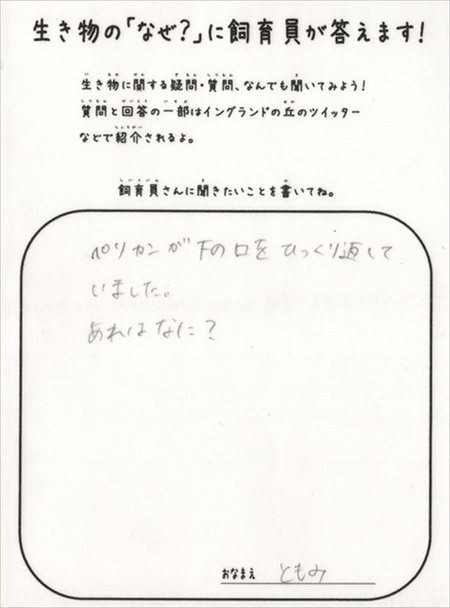 生き物の「なぜ?」に飼育員が答えます!
生き物に関する疑問・質問、なんでも聞いてみよう!
質問と回答の一部はイングランドの丘のツイッター
などで紹介されるよ。
飼育員さんに聞きたいことを書いてね。
ペリカンが下の口をひっくり返して
いました。
あれはなに?
おなまえ ともみ